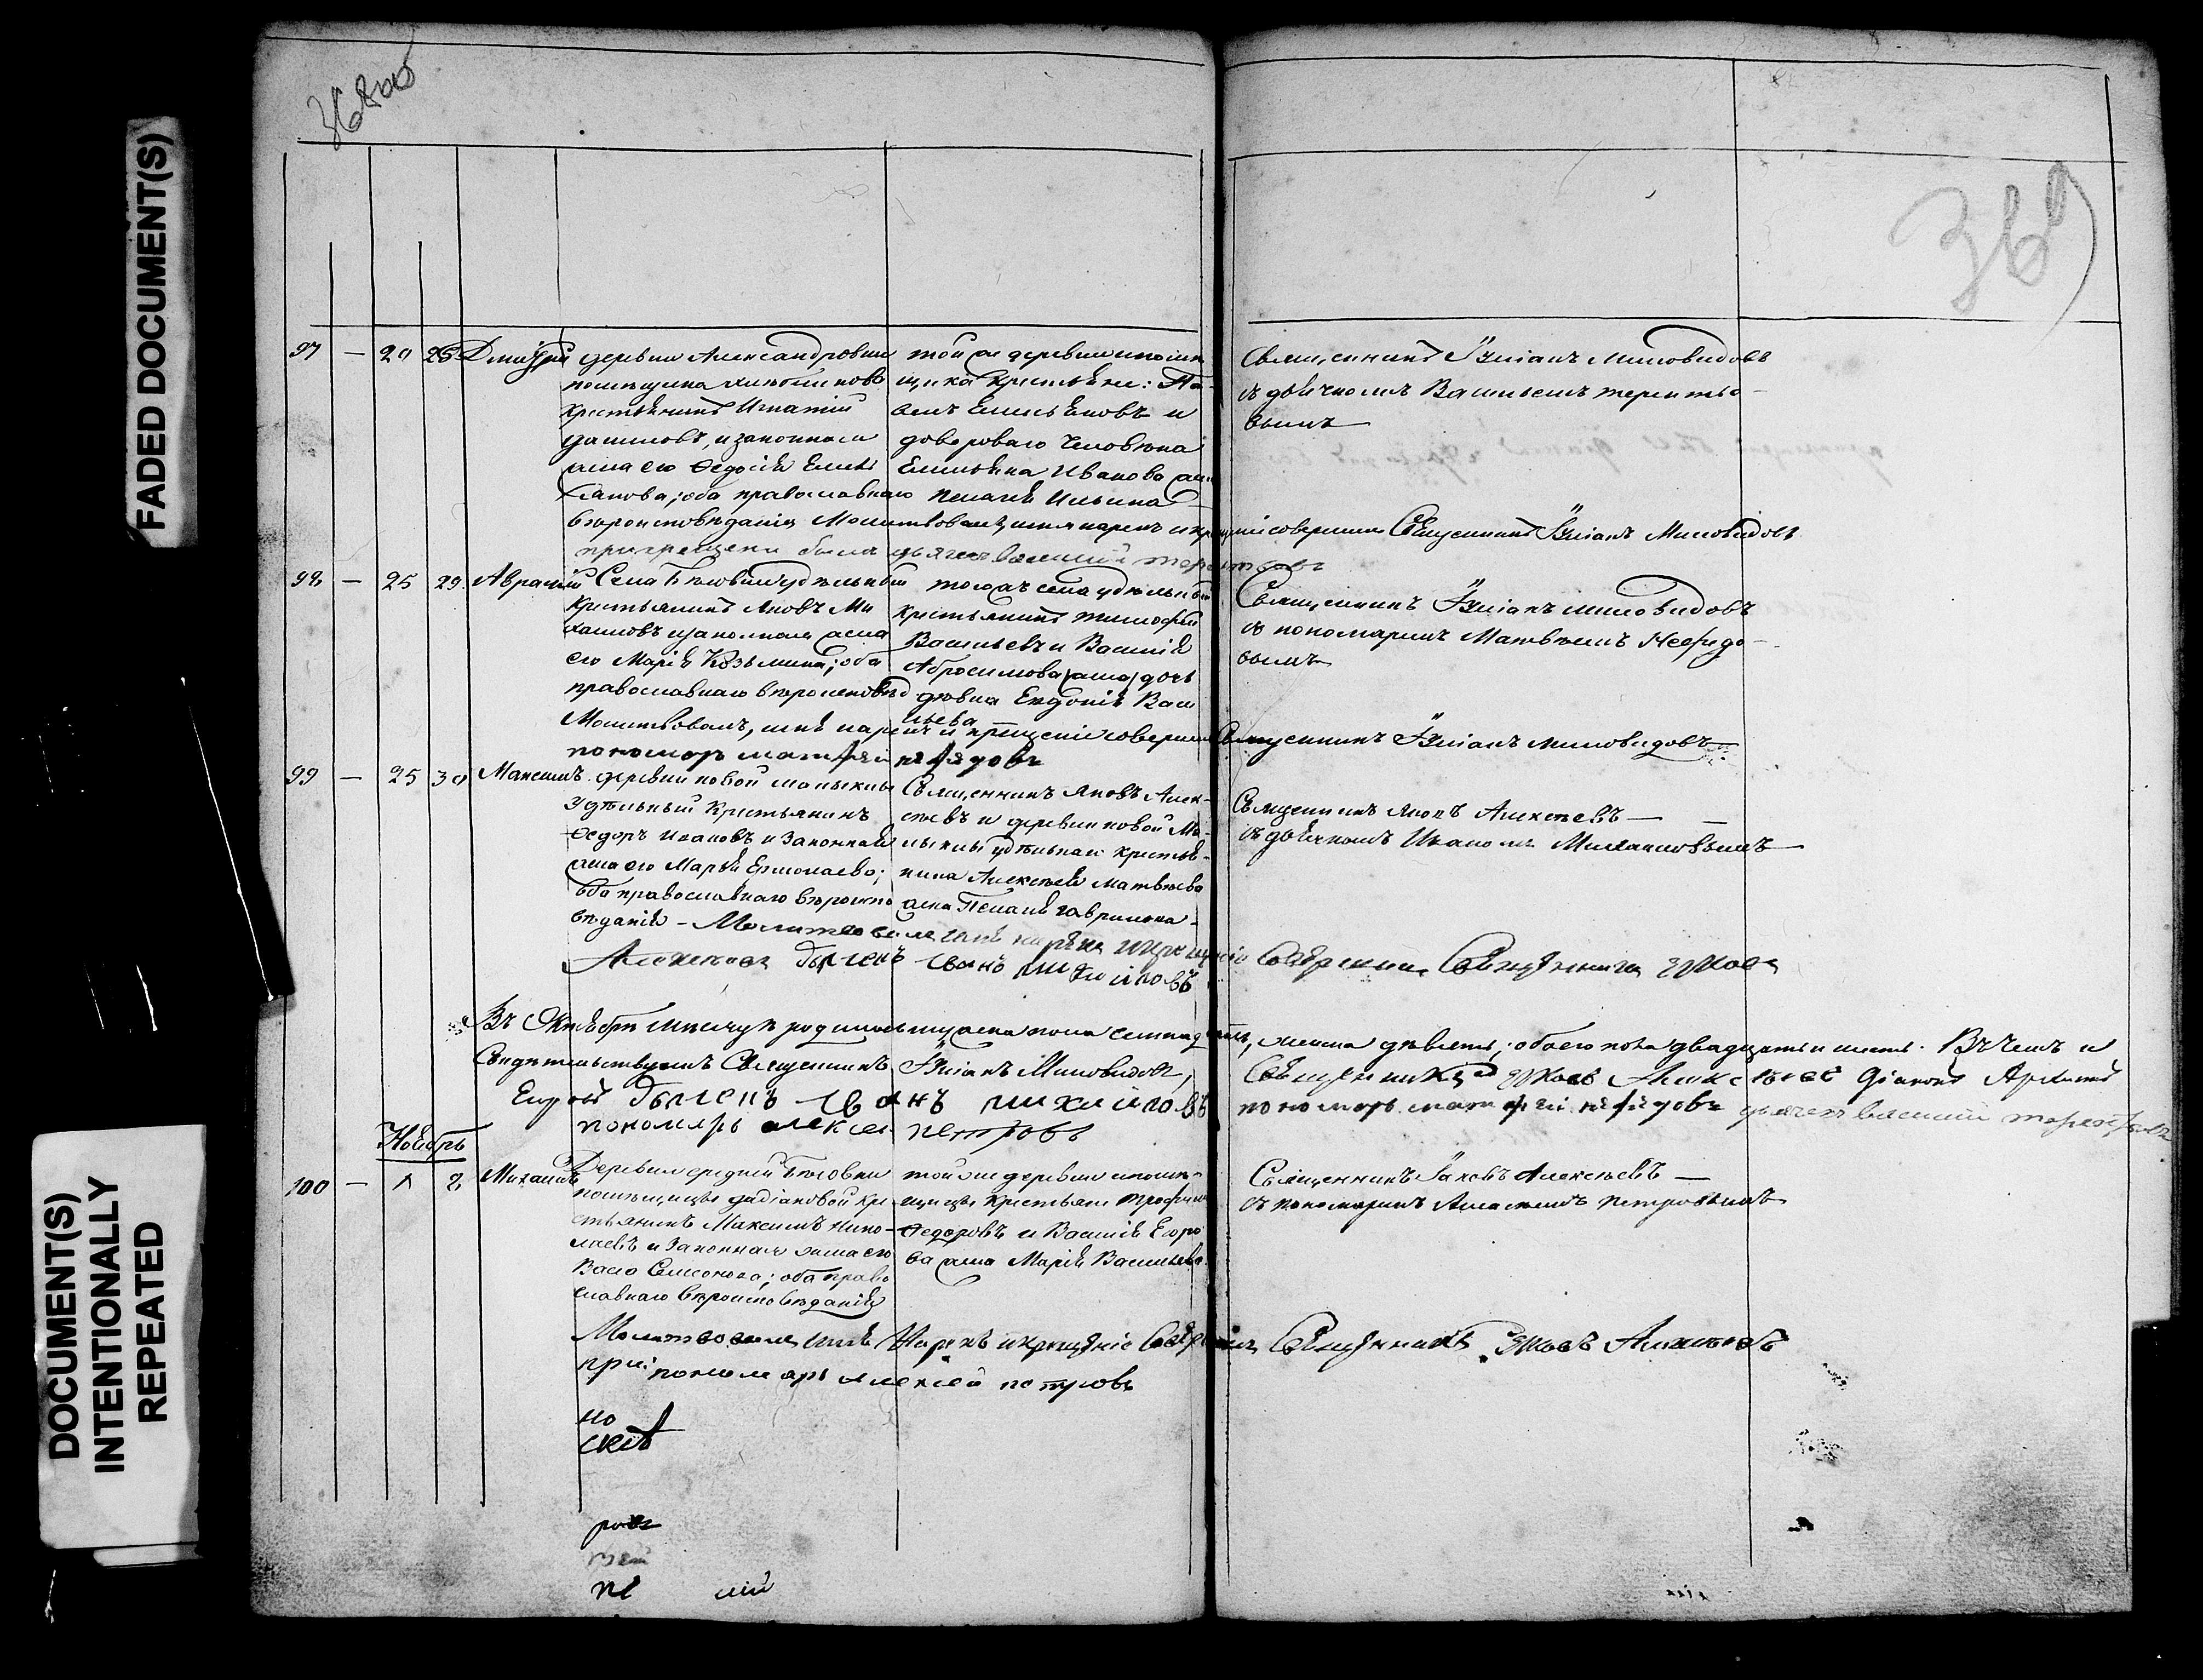 FADED DOCUMENT(S)
DOCUMENT(S)
INTENTIONALLY
REPEATED
368 об
369
97 — 20 25 Дмитрій
деревни Александровки
помѣщика
крестьянинъ Игнатій
Даниловъ, и законная
жена его Ѳедосія Емель
янова; оба православнаго
вѣроисповѣданія
той же деревни помѣ
щика крестьяне: Па-
велъ Емельяновъ и
двороваго человѣка
Емельяна Иванова жена
Пелагія Ильина
Священникъ Іуліанъ Миловидовъ
съ дьячкомъ Васильемъ Теренть-
евымъ
Молитвовалъ, имя нарекъ и крещеніе совершилъ Священникъ Іуліанъ Миловидовъ
при крещеніи былъ дьячекъ Василій Терентьевъ
98 — 25 29 Аврамій
Села удѣльный
крестьянинъ Яковъ Ми
хаиловъ и законная жена
его Марія Козьмина; оба
православнаго вѣроисповѣд
того жъ села удѣльный
крестьянинъ Тимофей
Васильевъ и Василія
Абросимова дочь
дѣвка Евдокія Васи
льева
Священникъ Іуліанъ Миловидовъ
съ пономаремъ Матвѣемъ Нефедо-
вымъ
Молитвовалъ, имя нарекъ и крещеніе совершилъ Священникъ Іуліанъ Миловидовъ
пономарь Матфей Нефедовъ
99 — 25 30 Максимъ
деревни новой Малыклы
Удѣльный Крестьянинъ
Ѳедоръ Ивановъ и Законная
жена его Марья Ермолаева;
оба православнаго вѣроиспо
вѣданія —
Священникъ Яковъ Алек-
сѣевъ и деревни новой Ма-
лыклы удѣльнаго крестья-
нина Алексѣя Матвѣева
жена Пелагія Гаврилова
Священникъ Яковъ Алексѣевъ —
съ дьячкомъ Иваномъ Михаиловымъ
Молитвовалъ имя нарекъ и крещеніе Совершилъ Священникъ Яковъ
Алексѣевъ Дьячекъ Иванъ Михайловъ
Въ Октябрѣ Мѣсяцѣ родилось мужеска пола семнадцать, женска девять; обоего пола двадцать и шесть. Въ чемъ и
Свидѣтельствуемъ Священникъ Іуліанъ Миловидовъ, Священникъ Яковъ Алексѣевъ Діаконъ
Дьячекъ Иванъ Михайловъ пономарь Матфей Нефедовъ дьячекъ Василій Терентьевъ
пономарь Алексей Петровъ
Ноябрь
100 — 1 2 Михаилъ
Деревни средней
помѣщицы Дадіановой кре
стьянинъ Максимъ Нико-
лаевъ и Законная жена его
Васса Семенова; оба право
славнаго вѣроисповѣданія
той же деревни помѣ-
щицы Крестьяне Трофимъ
Ѳедоровъ и Василія Егоро
ва жена Марія Васильева
Священникъ Іаковъ Алексѣевъ —
съ пономаремъ Алексѣемъ Петровымъ
Молитвовалъ имя Нарекъ и крещеніе Совершилъ Священникъ Яковъ Алексѣевъ
при: пономарь Алексей Петровъ